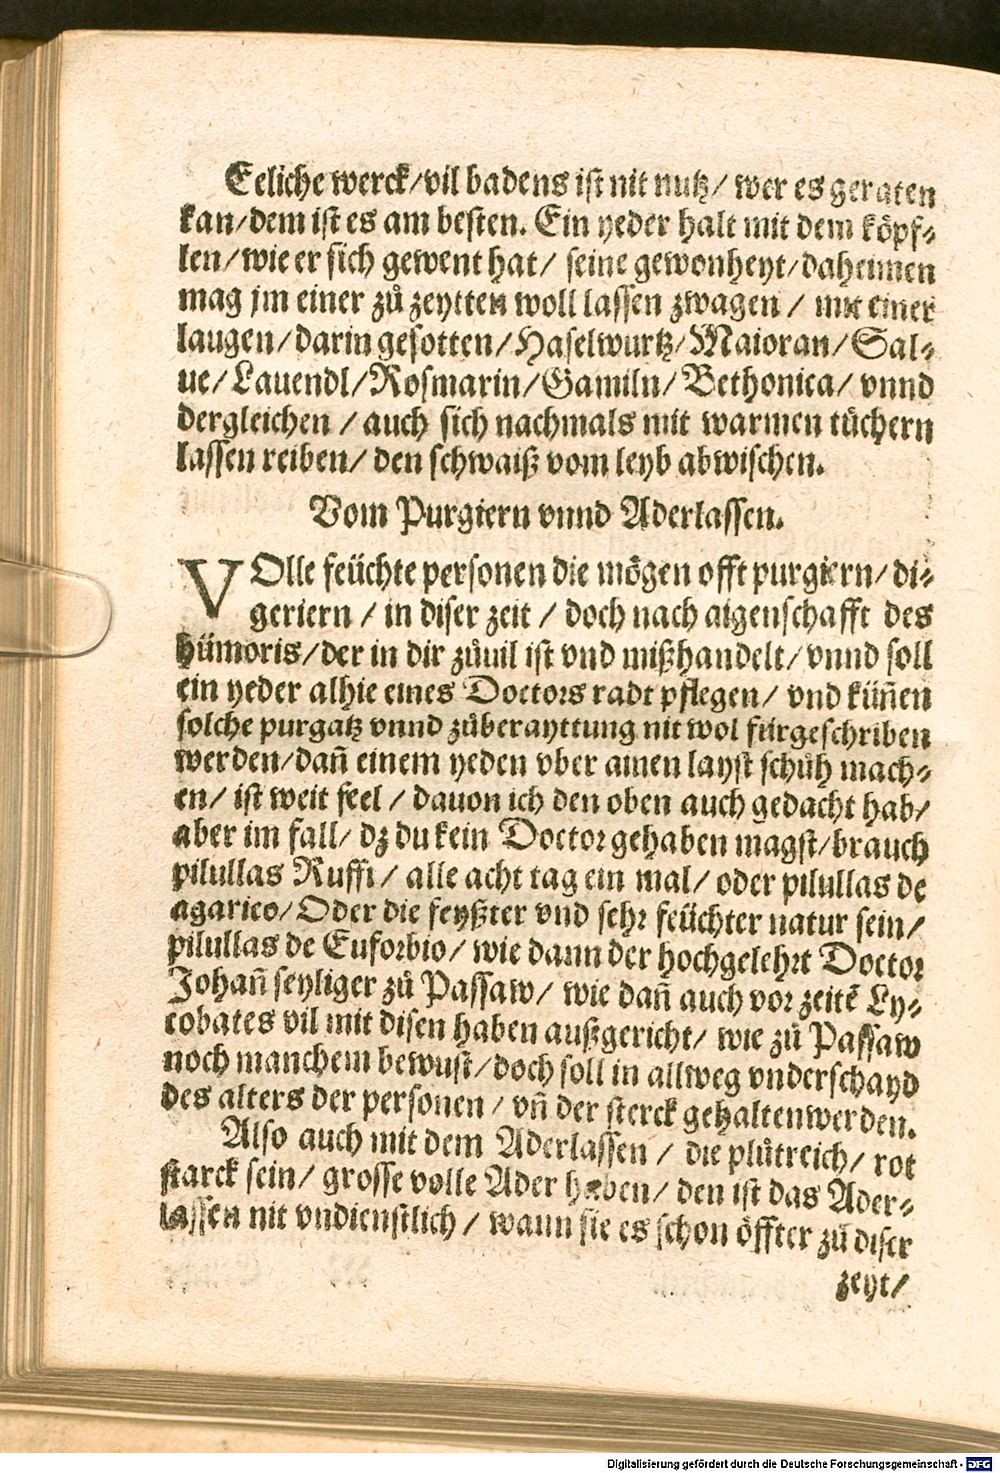 Eeliche werck/vil badens ist nit nutz/ wer es geraten
kan/dem ist es am besten. Ein yeder halt mit dem köpf⸗
len/wie er sich gewent hat/ seine gewonheyt/daheimen
mag jm einer zů zeytten woll lassen zwagen / mit einer
laugen/darin gesotten/Haselwurtz/Maioran/Sal⸗
ue/Lauendl/Rosmarin/Gamiln/Bethonica/ vnnd
dergleichen / auch sich nachmals mit warmen tüchern
lassen reiben/ den schwaiß vom leyb abwischen.
Vom Purgiern vnnd Aderlassen.
VOlle feüchte personen die mögen offt purgiern/ di⸗
geriern / in diser zeit / doch nach aigenschafft des
hümoris/der in dir zůuil ist vnd mißhandelt/vnnd soll
ein yeder alhie eines Doctors radt pflegen/ vnd küñen
solche purgatz vnnd zůberayttung nit wol fürgeschriben
werden/dañ einem yeden vber ainen layst schůh mach⸗
en/ ist weit feel / dauon ich den oben auch gedacht hab/
aber im fall/ dz du kein Doctor gehaben magst/brauch
pilullas Ruffi/ alle acht tag ein mal/ oder pilullas de
agarico/Oder die feyßter vnd sehr feüchter natur sein/
pilullas de Euforbio/ wie dann der hochgelehrt Doctor
Johañ seyliger zů Passaw/ wie dañ auch vor zeitē Ly⸗
cobates vil mit disen haben außgericht/ wie zů Passaw
noch manchem bewust/doch soll in allweg vnderschayd
des alters der personen / vñ der sterck gehalten werden.
Also auch mit dem Aderlassen / die plůtreich/ rot
starck sein/ grosse volle Ader haben/ den ist das Ader⸗
lassen nit vndienstlich / wann sie es schon öffter zů diser
zeyt/
Digitalisierung gefördert durch die Deutsche Forschungsgemeinschaft - DFG